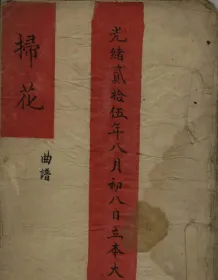 光緒貳拾伍年八月初八日立本大
掃花
曲譜